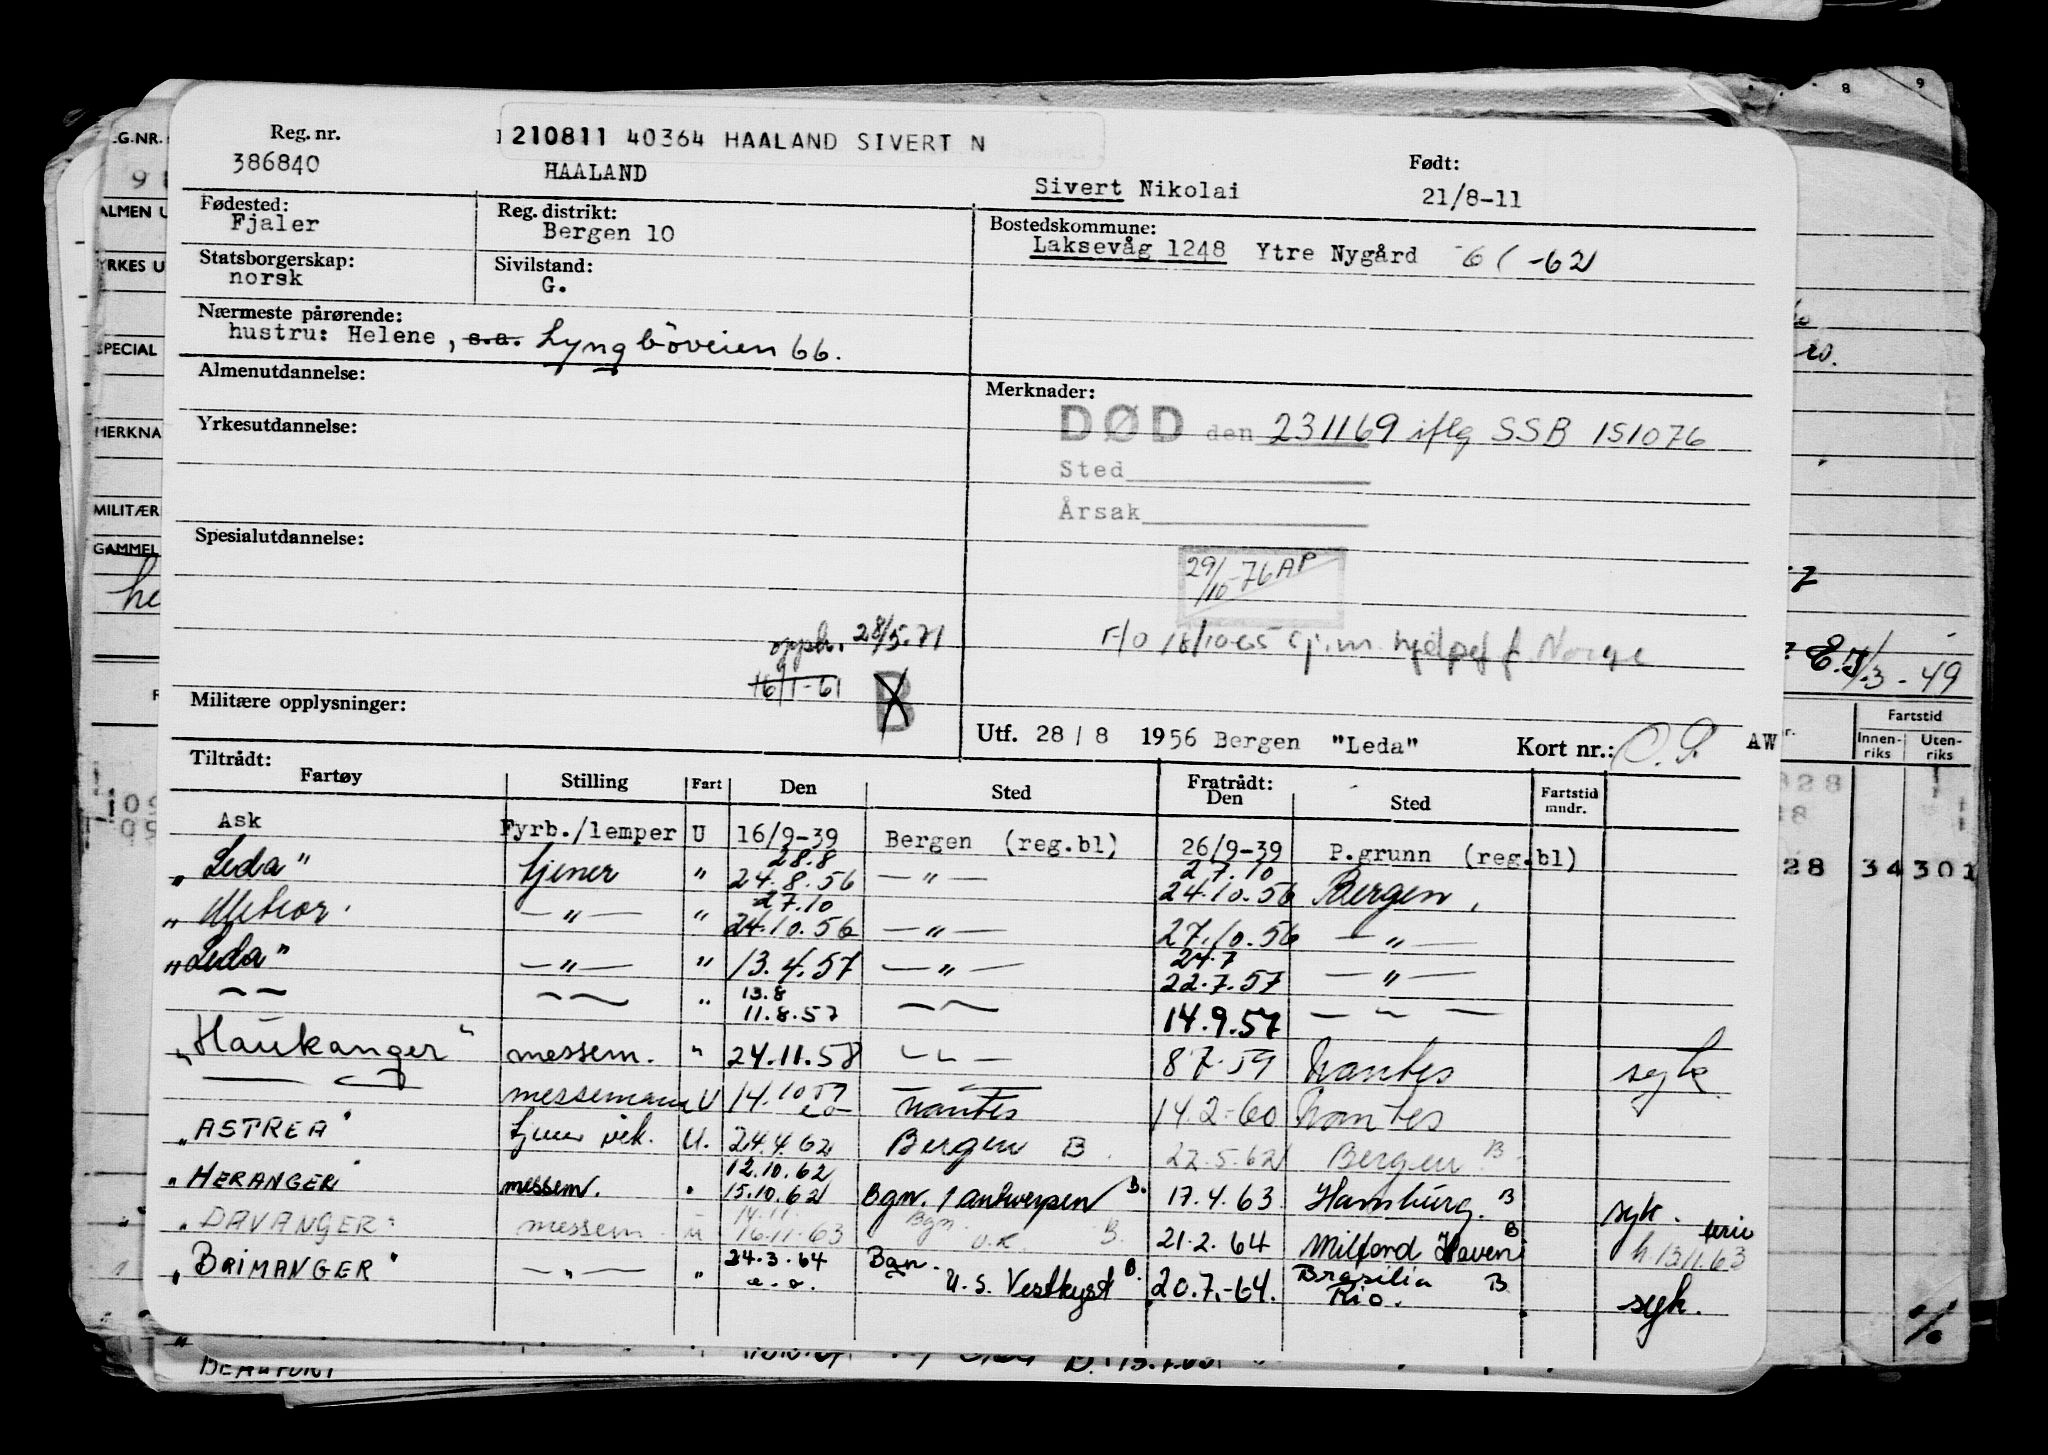 Reg. nr.
386840
210811 40364 HAALAND SIVERT N
HAALAND
Sivert Nikolai
Født:
21/8-11
Fødested:
Fjaler
Reg. distrikt:
Bergen 10
Bostedskommune:
Laksevåg 1248 Ytre Nygård -62
Statsborgerskap:
norsk
Sivilstand:
G.
Nærmeste pårørende:
hustru: Helene, s.a. Lyngbøveien 66.
Almenutdannelse:
Merknader:
DØD den 231169 iflg SSB 151076
Sted
Årsak
Yrkesutdannelse:
Spesialutdannelse:
29/10-76 AP
opph. 28/5.71
16/1-61
B
Militære opplysninger:
Utf. 28 / 8 1956 Bergen "Leda" Kort nr.: AW
Tiltrådt:
Fartøy Stilling Fart Den Sted Fratrådt: Den Sted Fartstid mndr.
Ask Fyrb./lemper U 16/9-39 Bergen (reg.bl) 26/9-39 P.grunn (reg.bl)
28.8 27.10
"Leda" tjener " 24.8.56 — " — 24.10.56 Bergen,
27.10
"Meteor. — " — " 24.10.56 — " — 27.10.56 — " —
24.7
"Leda" — " — " 13.4.57 — " — 22.7.57 — " —
13.8
" 11.8.57 14.9.57
"Haukanger" messem. " 24.11.58 8.7.59 Nantes syk
messemann U 14.10.59 Nantes 14.2-60 Nantes
"ASTREA" tjener vik. U. 24.4.62 Bergen B. 22.5.62 Bergen B
12.10.62
"HERANGER" messem. " 15.10.62 Bgn. / antwerpen B. 17.4.63 Hamburg. B syk.
14.11 Bgn.
"DAVANGER" messem u 16.11.63 U.K B. 21.2.64 Milford Haven B ferie
h. 13/1.63
"BRIMANGER" — " — " 24.3.64 Bgn. U.S. Vestkyst B. 20.7.-64. Brasilia Rio. B syk.
REG.NR.
ALMEN U
YRKES U
SPECIAL
MERKNA
MILITÆR
GAMMEL
3 - 49
Fartstid
Innen-riks Uten-riks
28 34 301
BEAUFORT